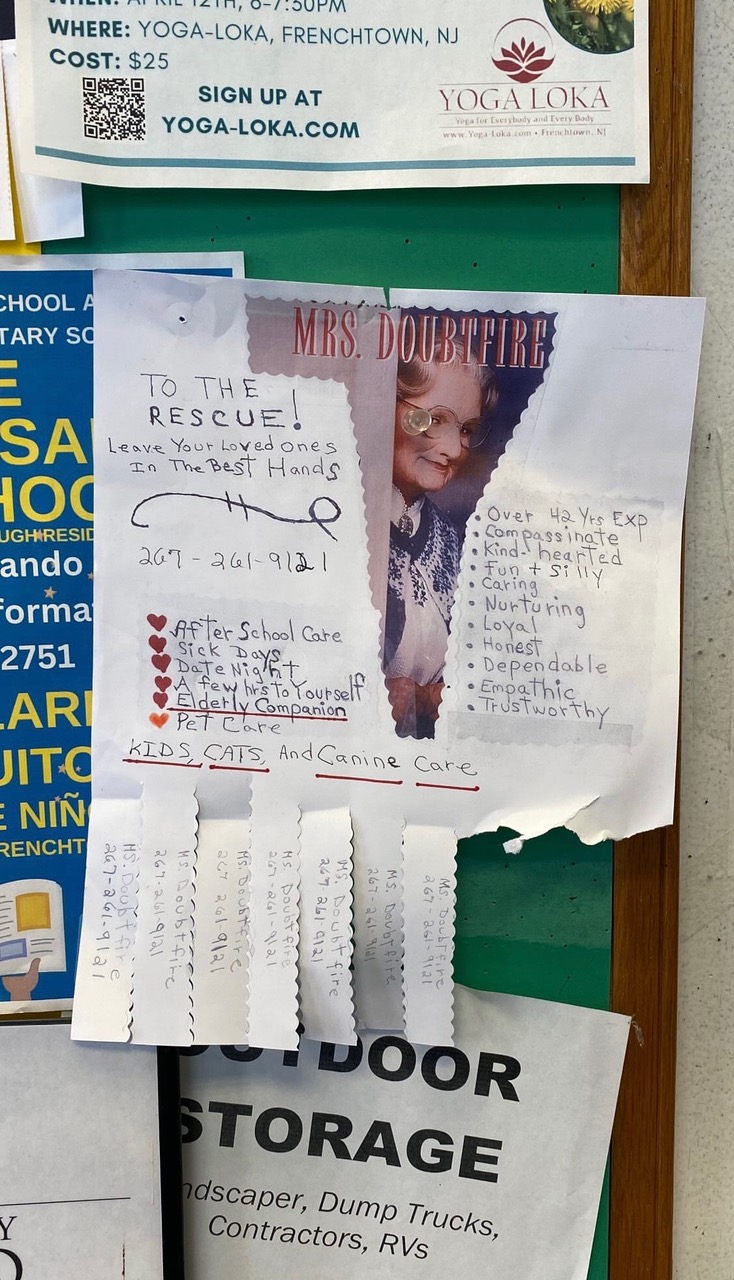 WHEN: APRIL 12TH, 6-7:50PM
WHERE: YOGA-LOKA, FRENCHTOWN, NJ
COST: $25
SIGN UP AT
YOGA-LOKA.COM
YOGA LOKA
Yoga for Everybody and Every Body
www.Yoga-Loka.com • Frenchtown, NJ
CHOOL A
TARY SC
E
SA
HOO
UGH RESID
ando
forma
2751
LARI
UITO
E NIÑ
RENCHT
MRS. DOUBTFIRE
TO THE
RESCUE!
Leave Your Loved ones
In The Best Hands
267-261-9121
After School Care
Sick Days
Date Night
A few hrs to Yourself
Elderly Companion
Pet Care
• Over 42 Yrs EXP
• Compassinate
• Kind-hearted
• Fun + Silly
• Caring
• Nurturing
• Loyal
• Honest
• Dependable
• Empathic
• Trustworthy
KIDS, CATS, And Canine Care
Ms. Doubtfire
267-261-9121
Ms. Doubtfire
267-261-9121
Ms. Doubtfire
267 261-9121
Ms. Doubtfire
267-261-9121
Ms. Doubtfire
267 261 9121
Ms. Doubtfire
267-261-9121
Ms. Doubtfire
267-261-9121
OUTDOOR
STORAGE
ndscaper, Dump Trucks,
Contractors, RVs
Y